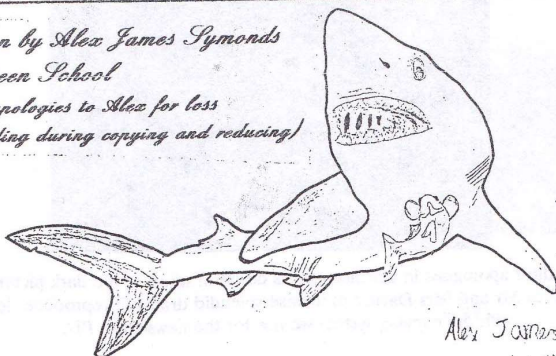 n by Alex James Symonds
een School
pologies to Alex for loss
ling during copying and reducing)
Alex James